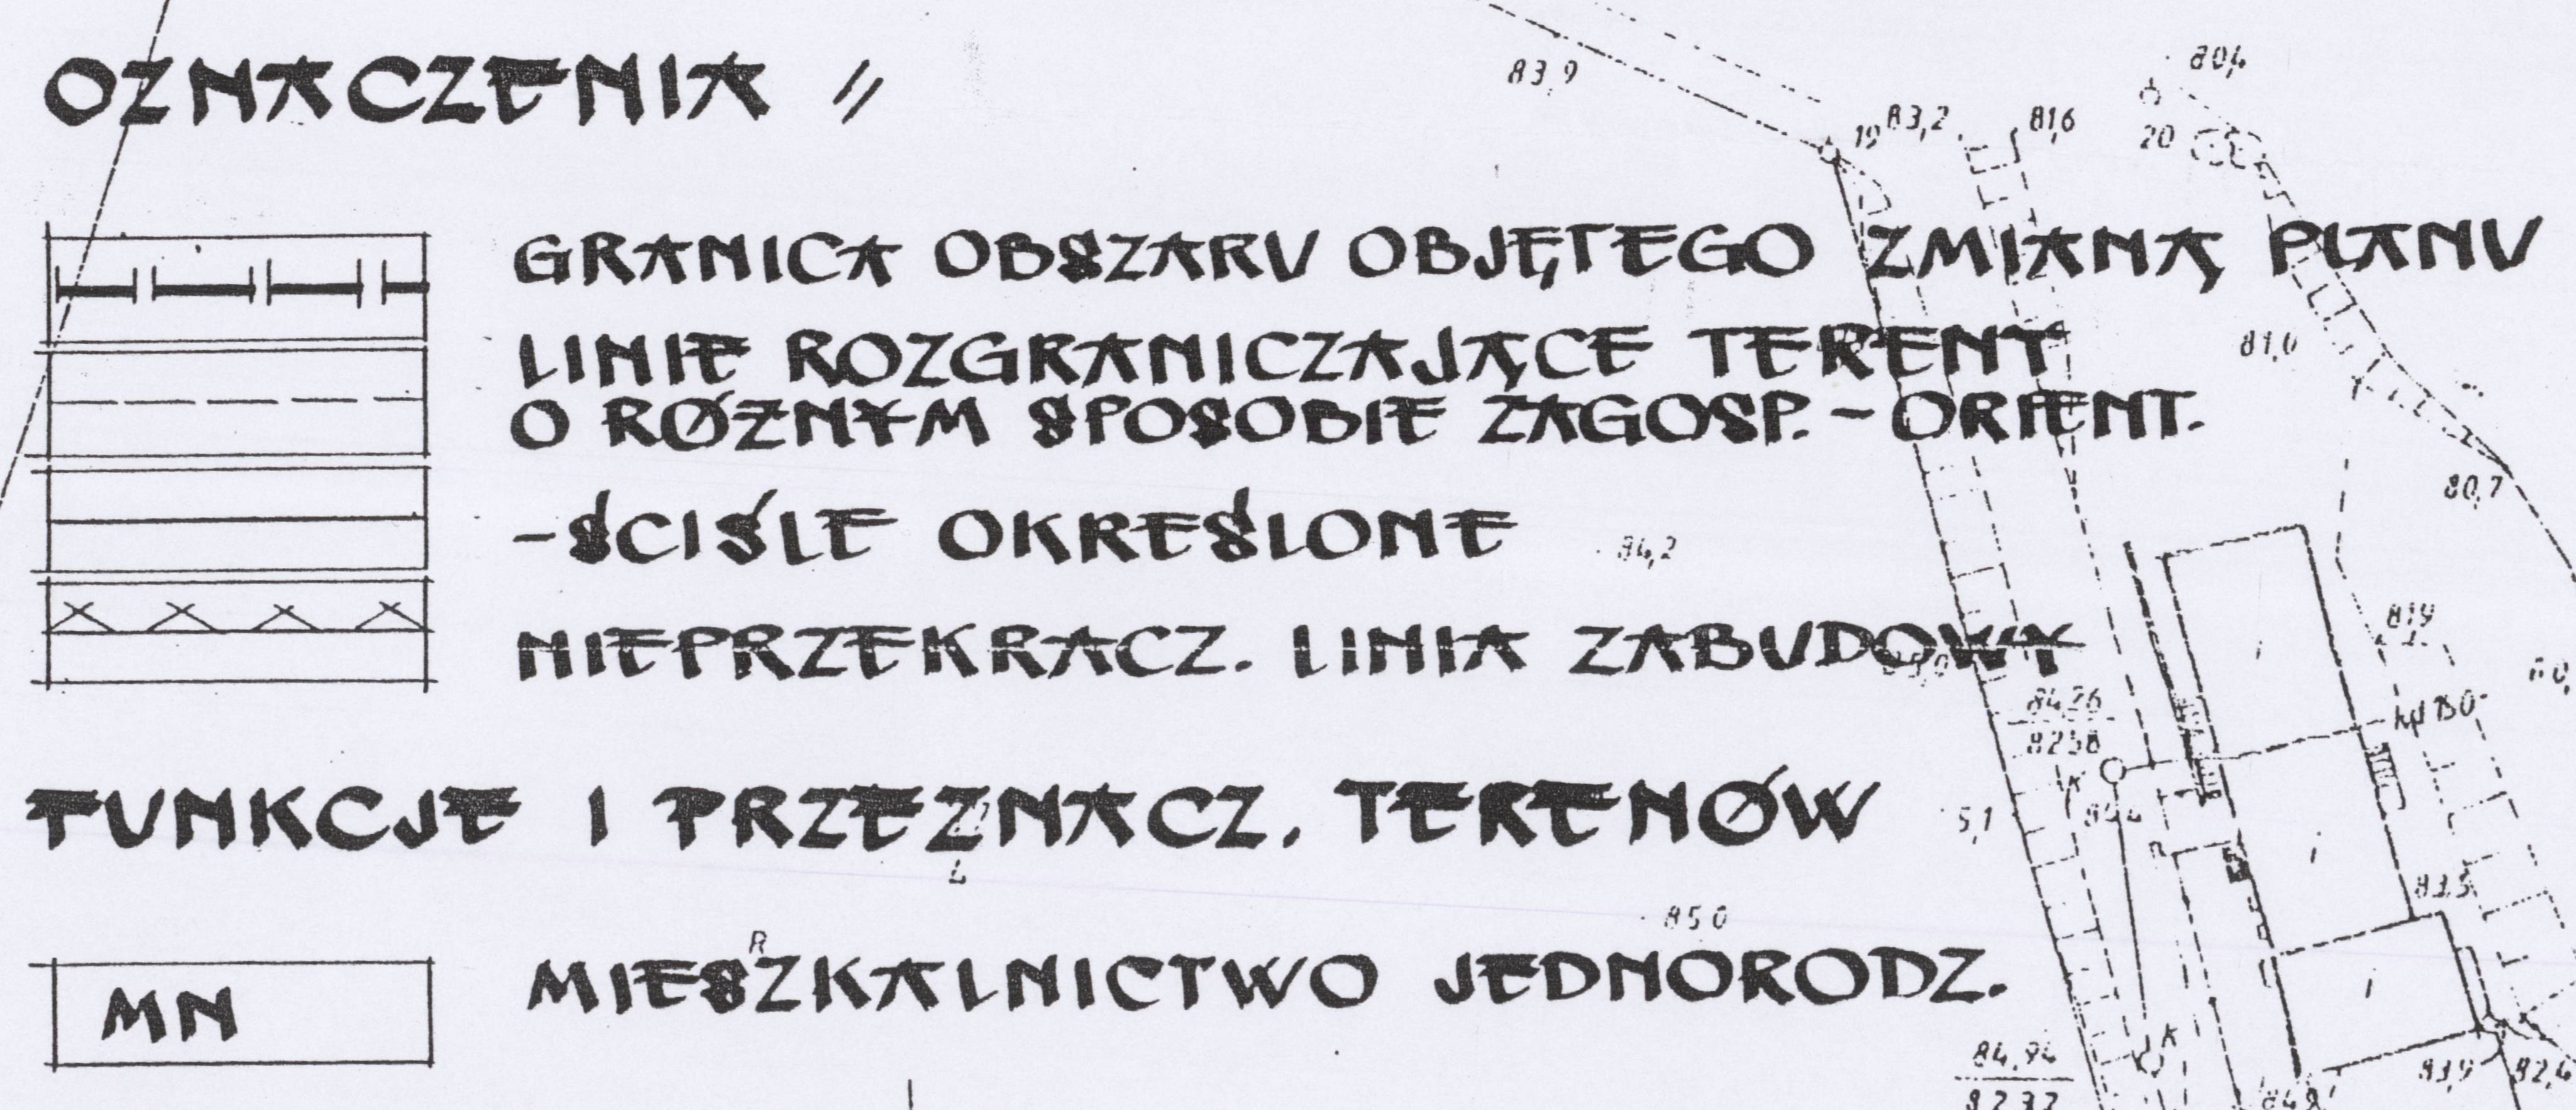 OZNACZENIA //
83,9
80,4
19 83,2
81,6
20
GRANICA OBSZARU OBJĘTEGO ZMIANĄ PLANU
LINIE ROZGRANICZAJĄCE TERENY
81,0
O RÓŻNYM SPOSOBIE ZAGOSP. - ORIENT.
80,7
- ŚCIŚLE OKREŚLONE
84,2
81,9
NIEPRZEKRACZ. LINIA ZABUDOWY
84,26
82,58
K
FUNKCJE I PRZEZNACZ. TERENÓW
5,1
83,5
85,0
R
MN MIESZKALNICTWO JEDNORODZ.
K
84,94
82,32
83,9
82,4
84,8